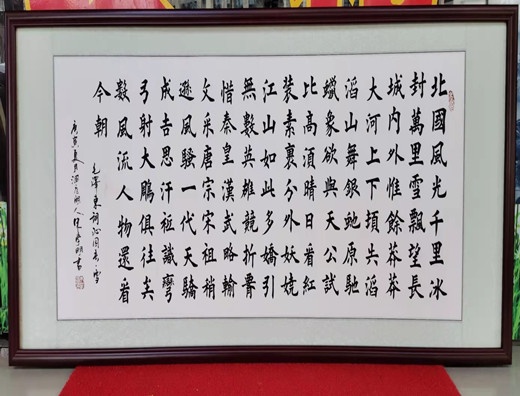 北國風光千里冰
封萬里雪飄望長
城内外惟餘莽莽
大河上下頓失滔
滔山舞銀蛇原馳
蠟象欲與天公試
比高須晴日看紅
裝素裹分外妖嬈
江山如此多嬌引
無數英雄競折腰
惜秦皇漢武略輸
文采唐宗宋祖稍
遜風騷一代天驕
成吉思汗祗識彎
弓射大鵰俱往矣
數風流人物還看
今朝
毛澤東詞沁園春雪
庚寅夏月